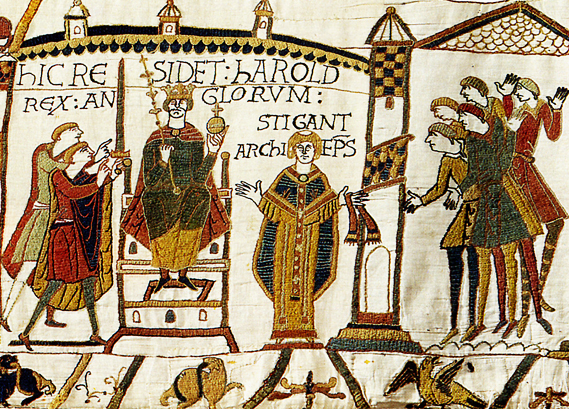 hIC RESIDET: hAROLD
REX: ANGLORVM:
STIGANT
ARChIEP̄S